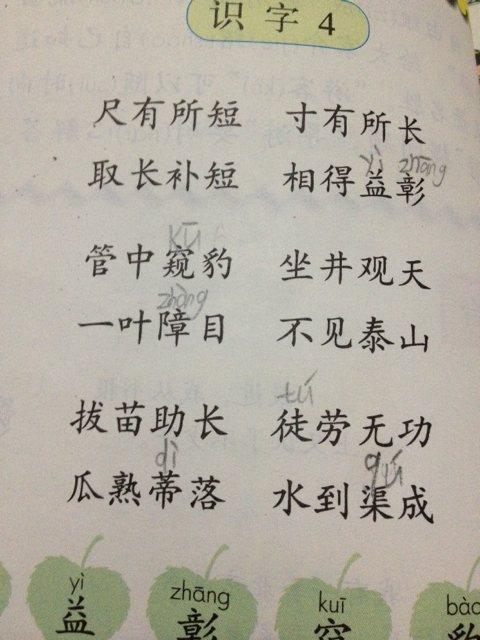 识字4
尺有所短 寸有所长
yì zhāng
取长补短 相得益彰
kū
管中窥豹 坐井观天
zhàng
一叶障目 不见泰山
tú
拔苗助长 徒劳无功
dì qú
瓜熟蒂落 水到渠成
yì zhāng kuī bào
益 彰 窥 豹